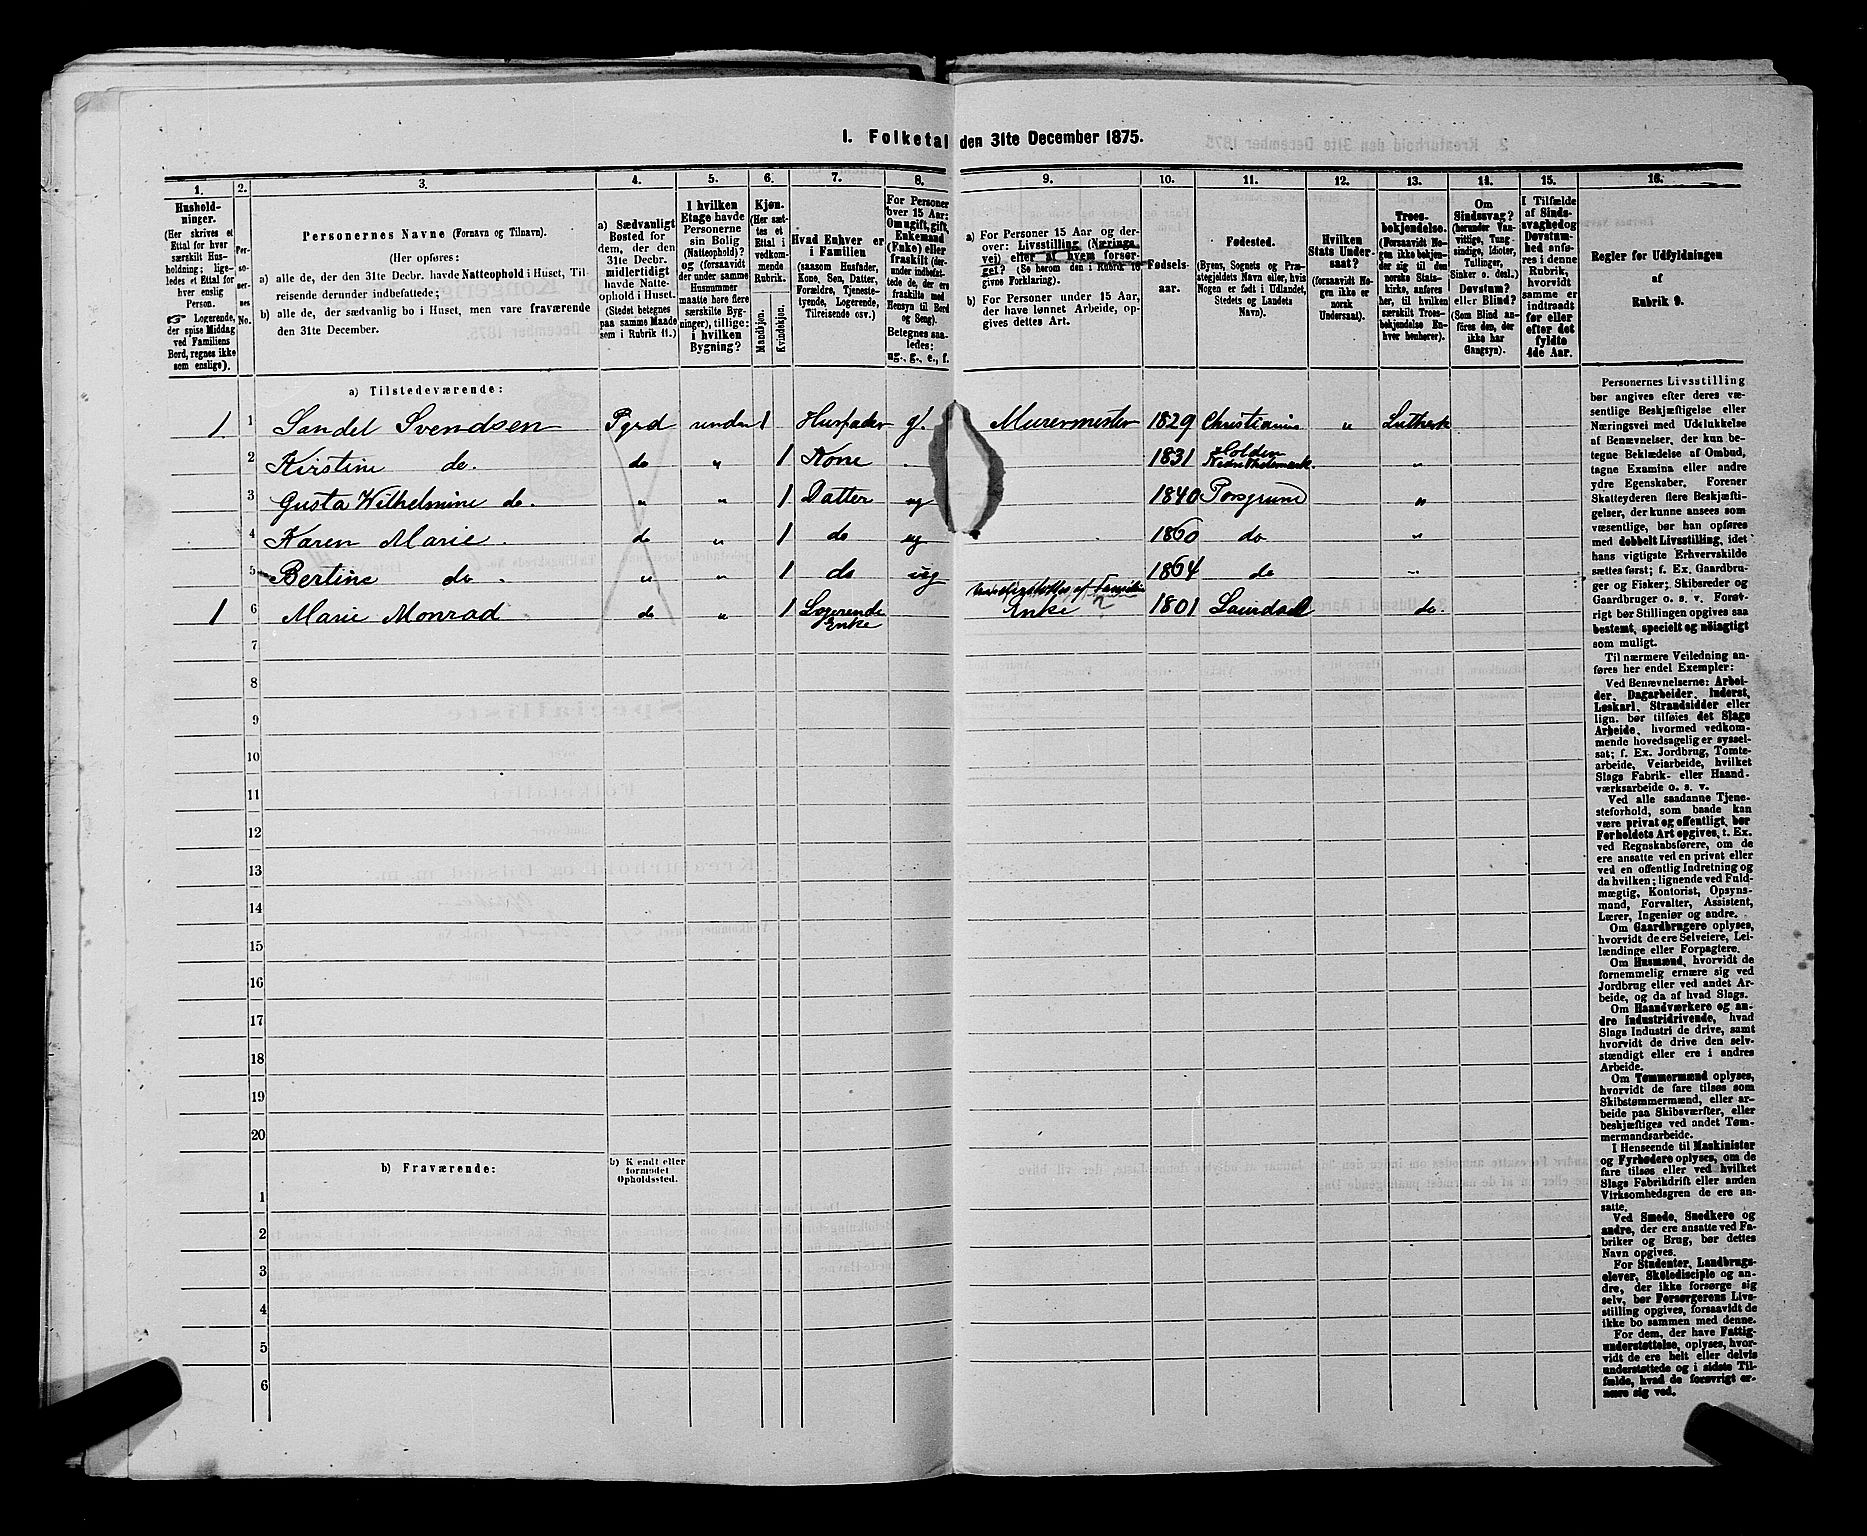 1. Folketal den 31te December 1875.
1. 2. 3. 4. 5. 6. 7. 8. 9. 10. 11. 12. 13. 14. 15. 16.
Hushold-
ninger.
(Her skrives et
Ettal for hver
særskilt Hus-
holdning; lige-
ledes et Ettal for
hver enslig
Person.
☞ Logerende,
der spise Middag
ved Familiens
Bord, regnes ikke
som enslige).
Per-
so-
ner-
nes
No.
Personernes Navne (Fornavn og Tilnavn).
(Her opføres:
a) alle de, der den 31te Decbr. havde Natteophold i Huset, Til-
reisende derunder indbefattede;
b) alle de, der sædvanlig bo i Huset, men vare fraværende
den 31te December.
a) Sædvanligt
Bosted for
dem, der den
31te Decbr.
midlertidigt
havde Natte-
ophold i Huset.
(Stedet betegnes
paa samme Maade
som i Rubrik 11.)
I hvilken
Etage havde
Personerne
sin Bolig
(Natteophold)?
og (forsaavidt
der under samme
Husnummer
maatte høre flere
særskilte Byg-
ninger), tillige:
i hvilken
Bygning?
Kjøn.
(Her sæt-
tes et
Ettal i
vedkom-
mende
Rubrik.
Mandkjøn.
Kvindekjøn.
Hvad Enhver er
i Familien
(saasom Husfader,
Kone, Søn, Datter,
Forældre, Tjeneste-
tyende, Logerende,
Tilreisende osv.)
For Personer
over 15 Aar:
Om ugift, gift,
Enkemand
(Enke) eller
fraskilt (der-
under indbefat-
tede de, der ere
fraskilte med
Hensyn til Bord
og Seng).
Betegnes saa-
ledes:
ug., g., e., f.
a) For Personer 15 Aar og der-
over: Livsstilling (Nærings-
vei) eller af hvem forsør-
get? (Se herom den i Rubrik 16
givne Forklaring).
b) For Personer under 15 Aar,
der have lønnet Arbeide, op-
gives dettes Art.
Fødsels-
aar.
Fødested.
(Byens, Sognets og Præ-
stegjeldets Navn eller, hvis
Nogen er født i Udlandet,
Stedets og Landets
Navn).
Hvilken
Stats Under-
saat?
(forsaavidt No-
gen ikke er
norsk
Undersaat).
Troes-
bekjendelse.
(Forsaavidt No-
gen ikke bekjen-
der sig til den
norske Stats-
kirke, anføres
her, til hvilken
særskilt Troes-
bekjendelse En-
hver henhører).
Om
Sindssvag?
(herunder Van-
vittige, Tung-
sindige, Idioter,
Tullinger,
Sinker o. desl.)
Døvstum?
eller Blind?
(Som Blind an-
føres den, der
ikke har
Gangsyn).
I Tilfælde
af Sinds-
svaghed og
Døvstum-
hed anfø-
res i denne
Rubrik,
hvorvidt
samme er
indtraadt
før eller
efter det
fyldte
4de Aar.
Regler for Udfyldningen
af
Rubrik 9.
a) Tilstedeværende:
1 1 Sandel Svendsen Pgrd under 1 Husfader g. Murermester 1829 Christiania " Luthersk
2 Kirstine do. do " 1 Kone . 1831 Holden "
3 Gusta Wilhelmine do. " " 1 Datter ug 1840 Porsgrund "
4 Karen Marie . do " 1 do ug 1860 do "
5 Bertine do . " " 1 do ug 1864 do "
1 6 Marie Monrad do " 1 Logerende Enke af Familie Enke 1801 Laurdal do.
7
8
9
10
11
12
13
14
15
16
17
18
19
20
b) Fraværende:
b) Kjendt eller
formodet
Opholdssted.
1
2
3
4
5
6
Personernes Livsstilling
bør angives efter deres væ-
sentlige Beskjæftigelse eller
Næringsvei med Udelukkelse
af Benævnelser, der kun be-
tegne Beklædelse af Ombud,
tagne Examina eller andre
ydre Egenskaber. Forener
Skatteyderen flere Beskjæfti-
gelser, der kunne ansees som
væsentlige, bør han opføres
med dobbelt Livsstilling, idet
hans vigtigste Erhvervskilde
sættes først; f. Ex. Gaardbru-
ger og Fisker; Skibsreder og
Gaardbruger o. s. v. Forøv-
rigt bør Stillingen opgives saa
bestemt, specielt og nøiagtigt
som muligt.
Til nærmere Veiledning an-
føres her endel Exempler:
Ved Benævnelserne: Arbei-
der, Dagarbeider, Inderst,
Løskarl, Strandsidder eller
lign. bør tilføies det Slags
Arbeide, hvormed vedkom-
mende hovedsagelig er syssel-
sat; f. Ex. Jordbrug, Tomte-
arbeide, Veiarbeide, hvilket
Slags Fabrik- eller Haand-
værksarbeide o. s. v.
Ved alle saadanne Tjene-
steforhold, som baade kan
være privat og offentligt, bør
Forholdets Art opgives, t. Ex.
ved Regnskabsførere, om de
ere ansatte ved en privat eller
ved en offentlig Indretning og
da hvilken; lignende ved Fuld-
mægtig, Kontorist, Opsyns-
mand, Forvalter, Assistent,
Lærer, Ingeniør og andre.
Om Gaardbrugere oplyses,
hvorvidt de ere Selveiere, Lei-
lændinge eller Forpagtere.
Om Husmænd, hvorvidt de
fornemmelig ernære sig ved
Jordbrug eller ved andet Ar-
beide, og da af hvad Slags.
Om Haandværkere og an-
dre Industridrivende, hvad
Slags Industri de drive, samt
hvorvidt de drive den selv-
stændigt eller ere i andres
Arbeide.
Om Tømmermænd oplyses,
hvorvidt de fare tilsøs som
Skibstømmermænd, eller ar-
beide paa Skibsværfter, eller
beskjæftiges ved andet Tøm-
mermandsarbeide.
I Henseende til Maskinister
og Fyrbødere oplyses, om de
fare tilsøs eller ved hvilket
Slags Fabrikdrift eller anden
Virksomhedsgren de ere an-
satte.
Ved Smede, Snedkere og
andre, der ere ansatte ved Fa-
briker og Brug, bør dettes
Navn opgives.
For Studenter, Landbrugs-
elever, Skoledisciple og an-
dre, der ikke forsørge sig
selv, bør Forsørgerens Livs-
stilling opgives, forsaavidt de
ikke bo sammen med denne.
For dem, der have Fattig-
understøttelse, oplyses, hvor-
vidt de ere helt eller delvis
understøttede og i sidste Til-
fælde, hvad de forøvrigt er-
nære sig ved.